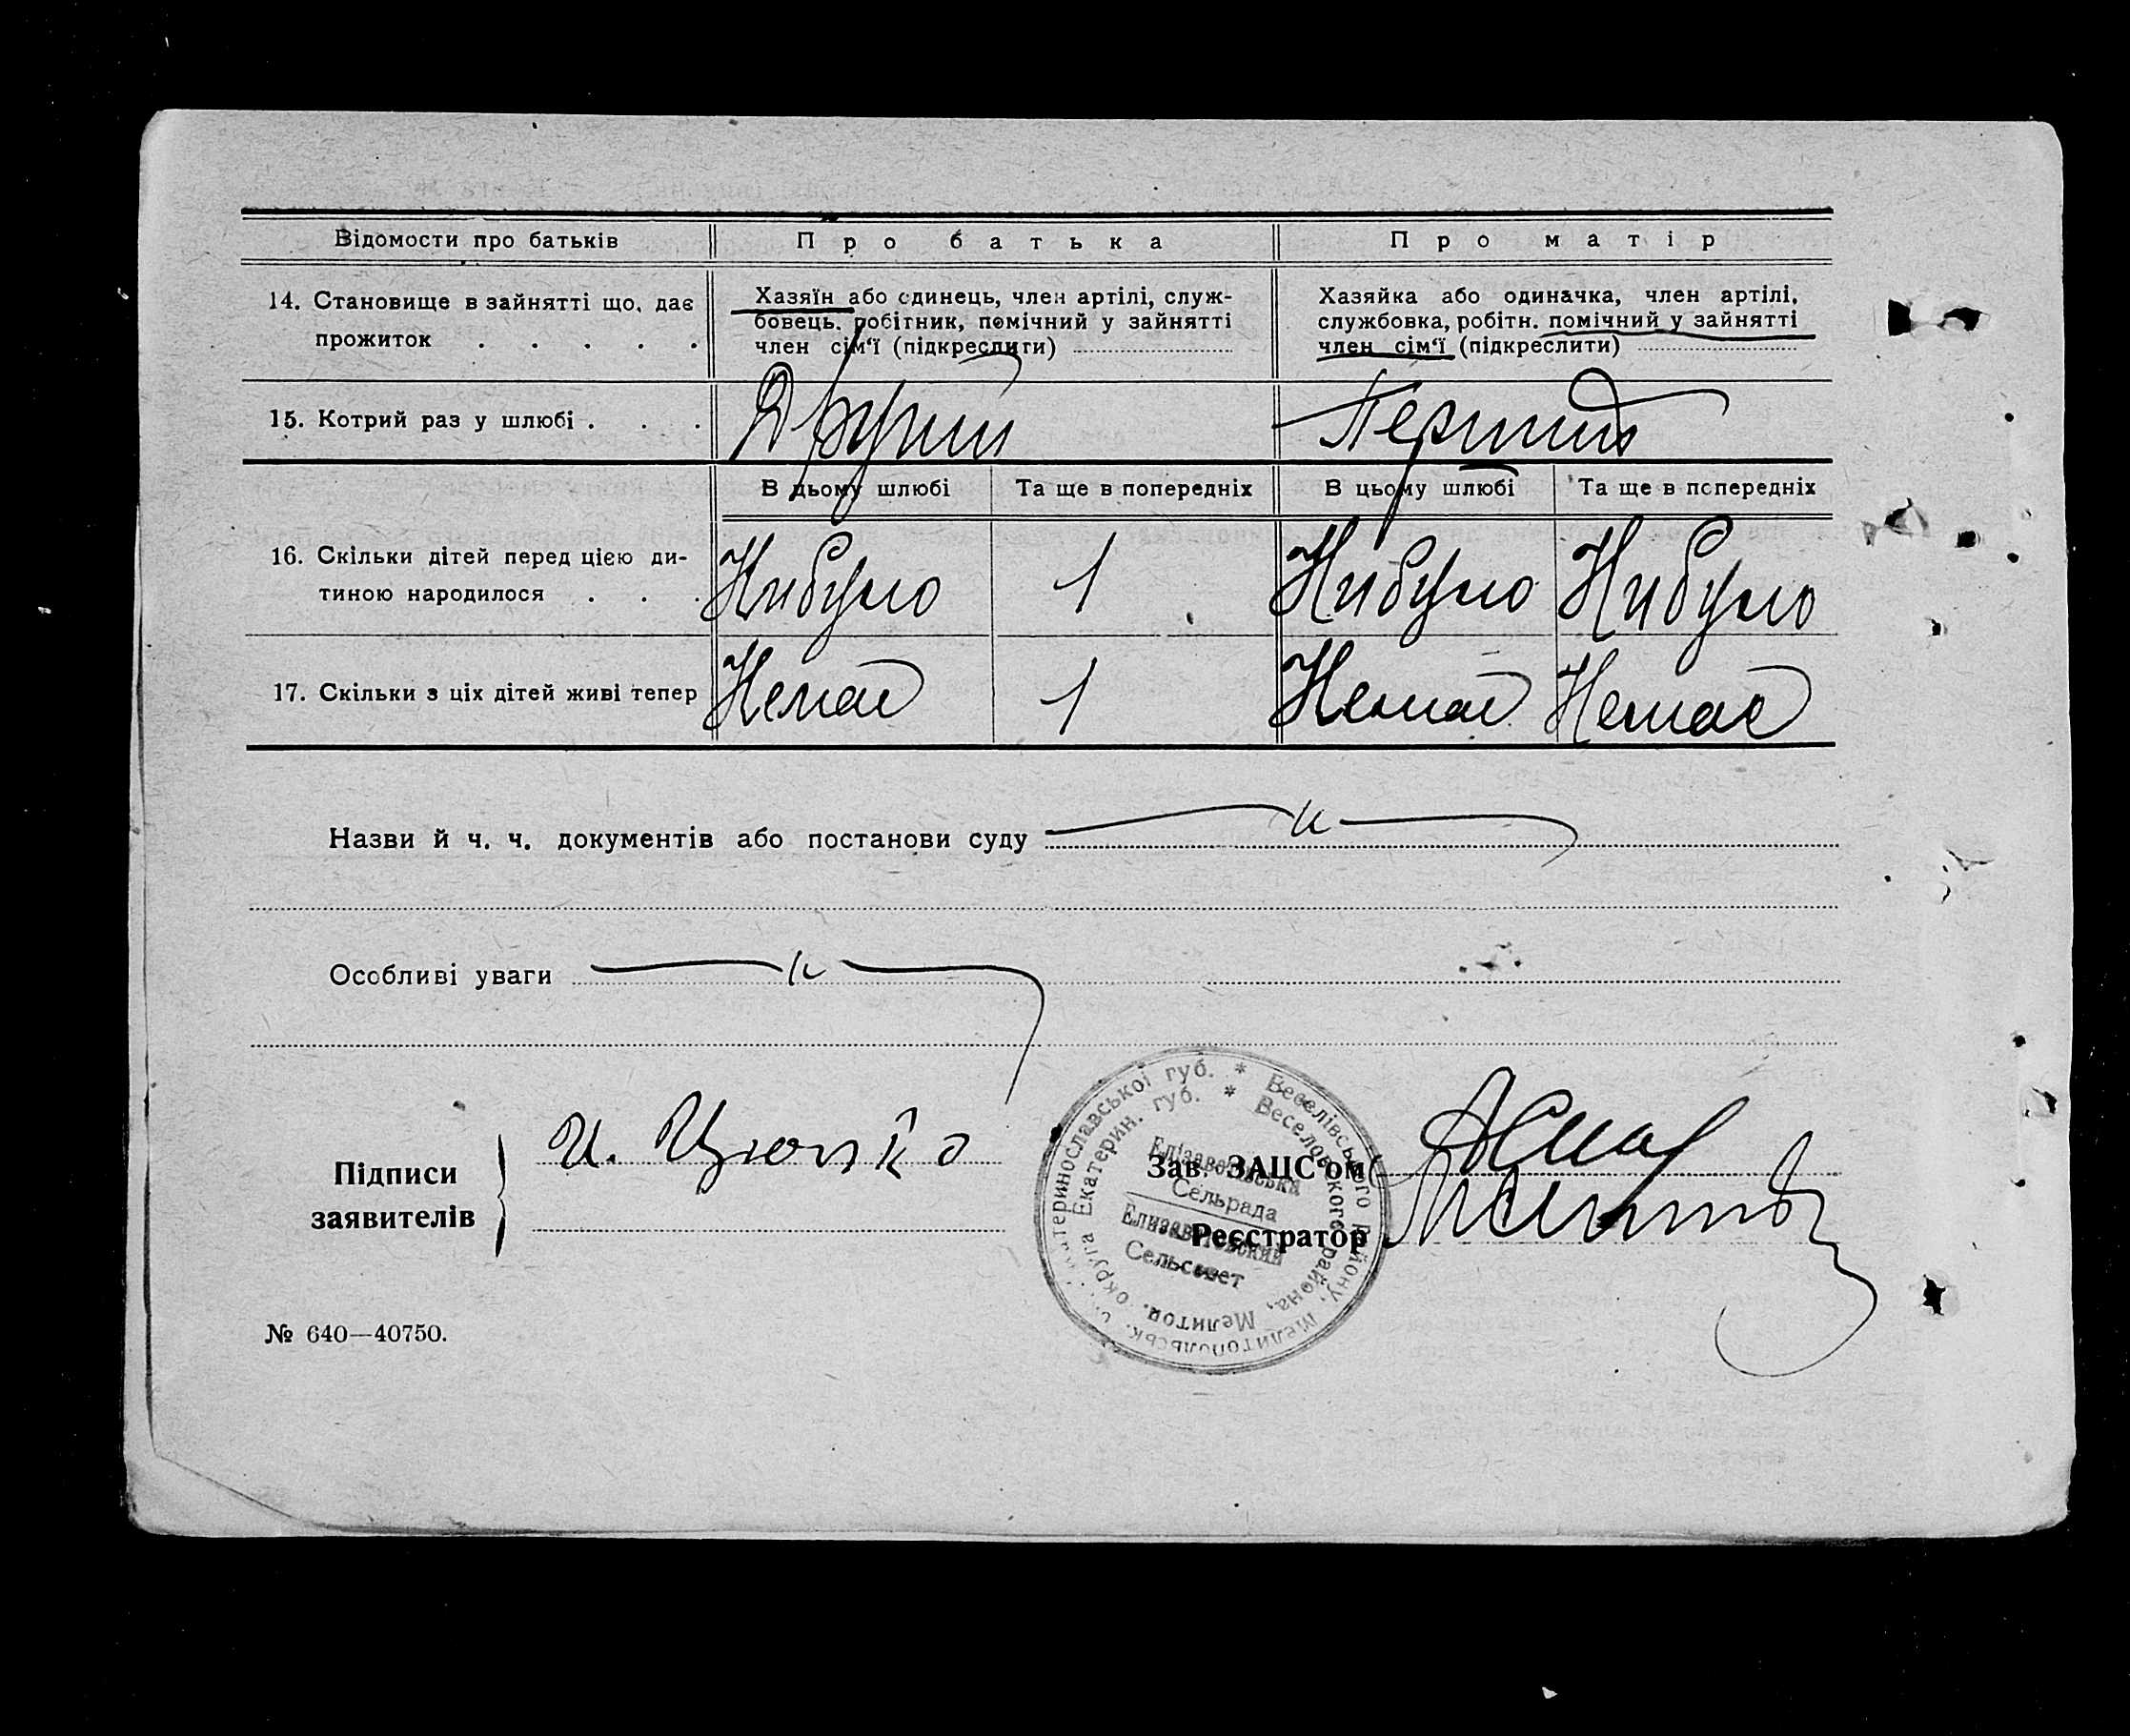 Відомости про батьків
Про батька
Про матір
14. Становище в зайнятті що, дає
прожиток . . . . .
Хазяїн або єдинець, член артілі, служ-
бовець, робітник, помічний у зайнятті
член сім'ї (підкреслити)
Хазяйка або одиначка, член артілі,
службовка, робітн. помічний у зайнятті
член сім'ї (підкреслити)
15. Котрий раз у шлюбі . . .
Другий
Перший
В цьому шлюбі
Та ще в попередніх
В цьому шлюбі
Та ще в попередніх
16. Скільки дітей перед цією ди-
тиною народилося . . .
Нибуло
1
Нибуло
Нибуло
17. Скільки з ціх дітей живі тепер
Немає
1
Немає
Немає
Назви й ч. ч. документів або постанови суду
Особливі уваги
Підписи
заявителів
И.
Зав. ЗАЦС'ом(
Реєстратор
Катеринославської губ. * Веселівського району, Мелитопольськ.
округа Екатерин. губ. * Веселовского района, Мелитоп.
Елізаветівська
Сельрада
Елизаветовский
Сельсовет
№ 640—40750.